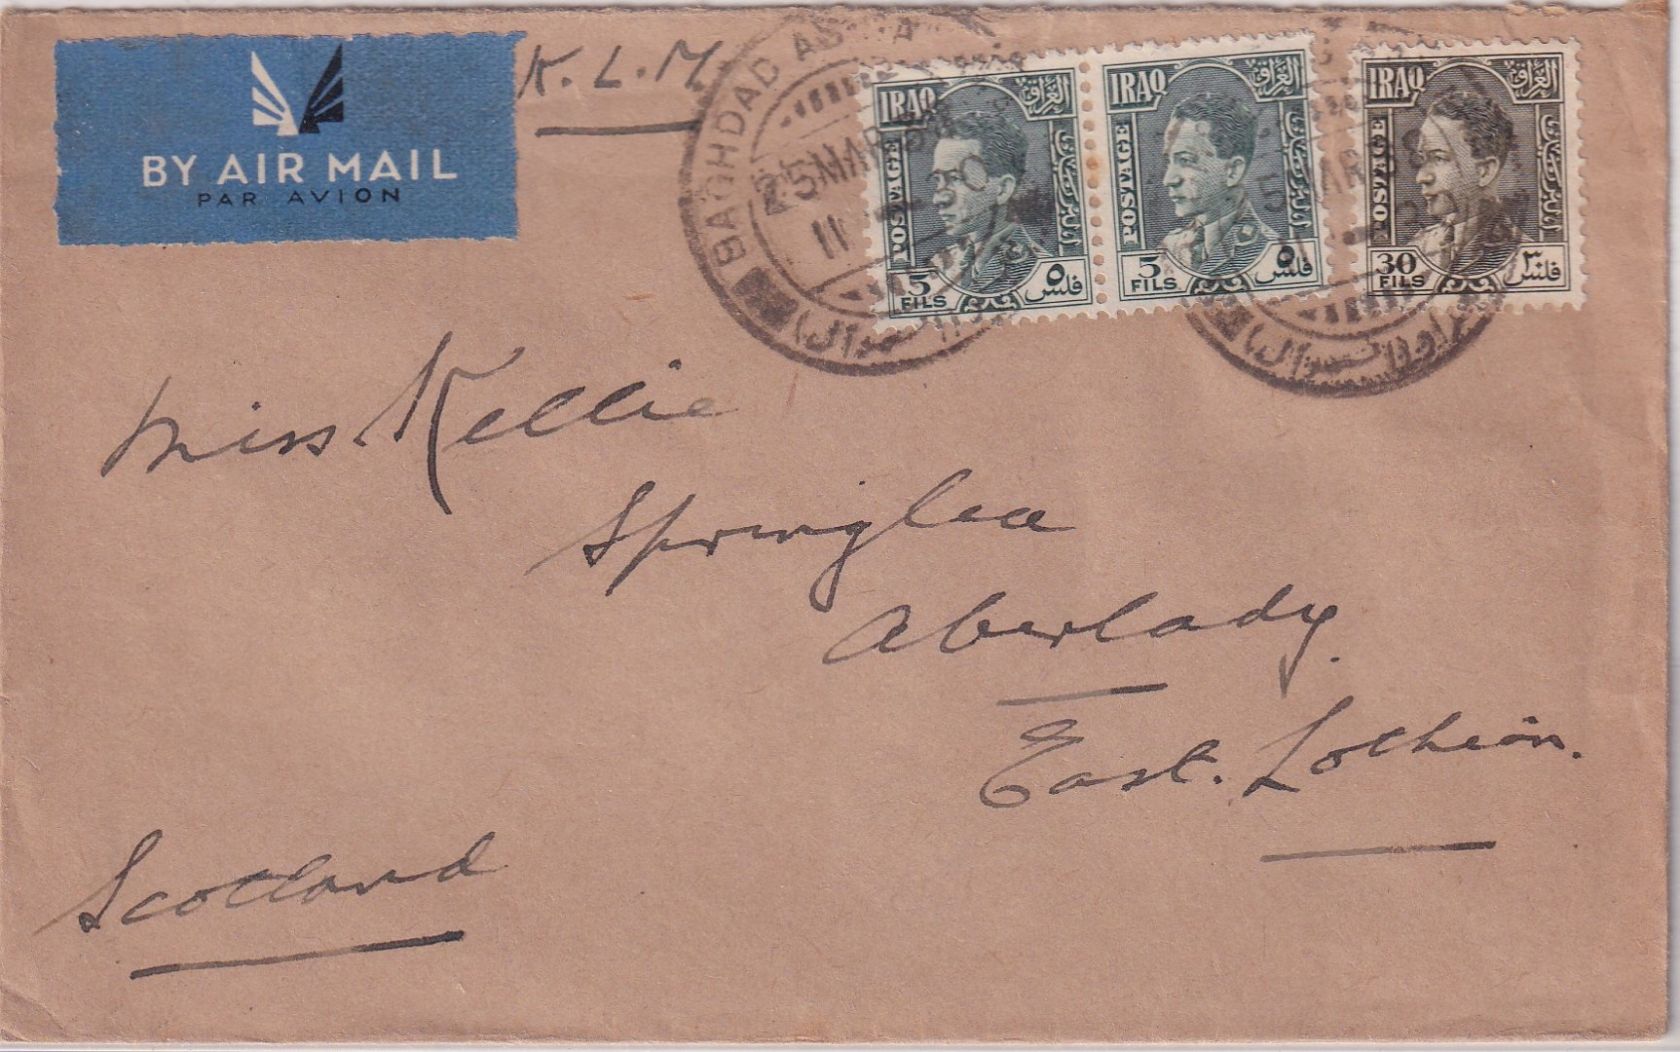 K.L.M.
BY AIR MAIL
PAR AVION
BAGHDAD
25 MAR
11
IRAQ
العراق
POSTAGE
5
٥
FILS
فلس
IRAQ
العراق
POSTAGE
5
٥
FILS
فلس
IRAQ
العراق
POSTAGE
30
٣٠
FILS
فلس
5 MAR
Miss Kellie
Springlea
Aberlady.
East. Lothian.
Scotland